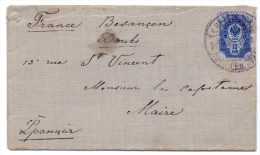 France Besançon
Doubs
13 rue St Vincent
Monsieur le
Maire
Франція